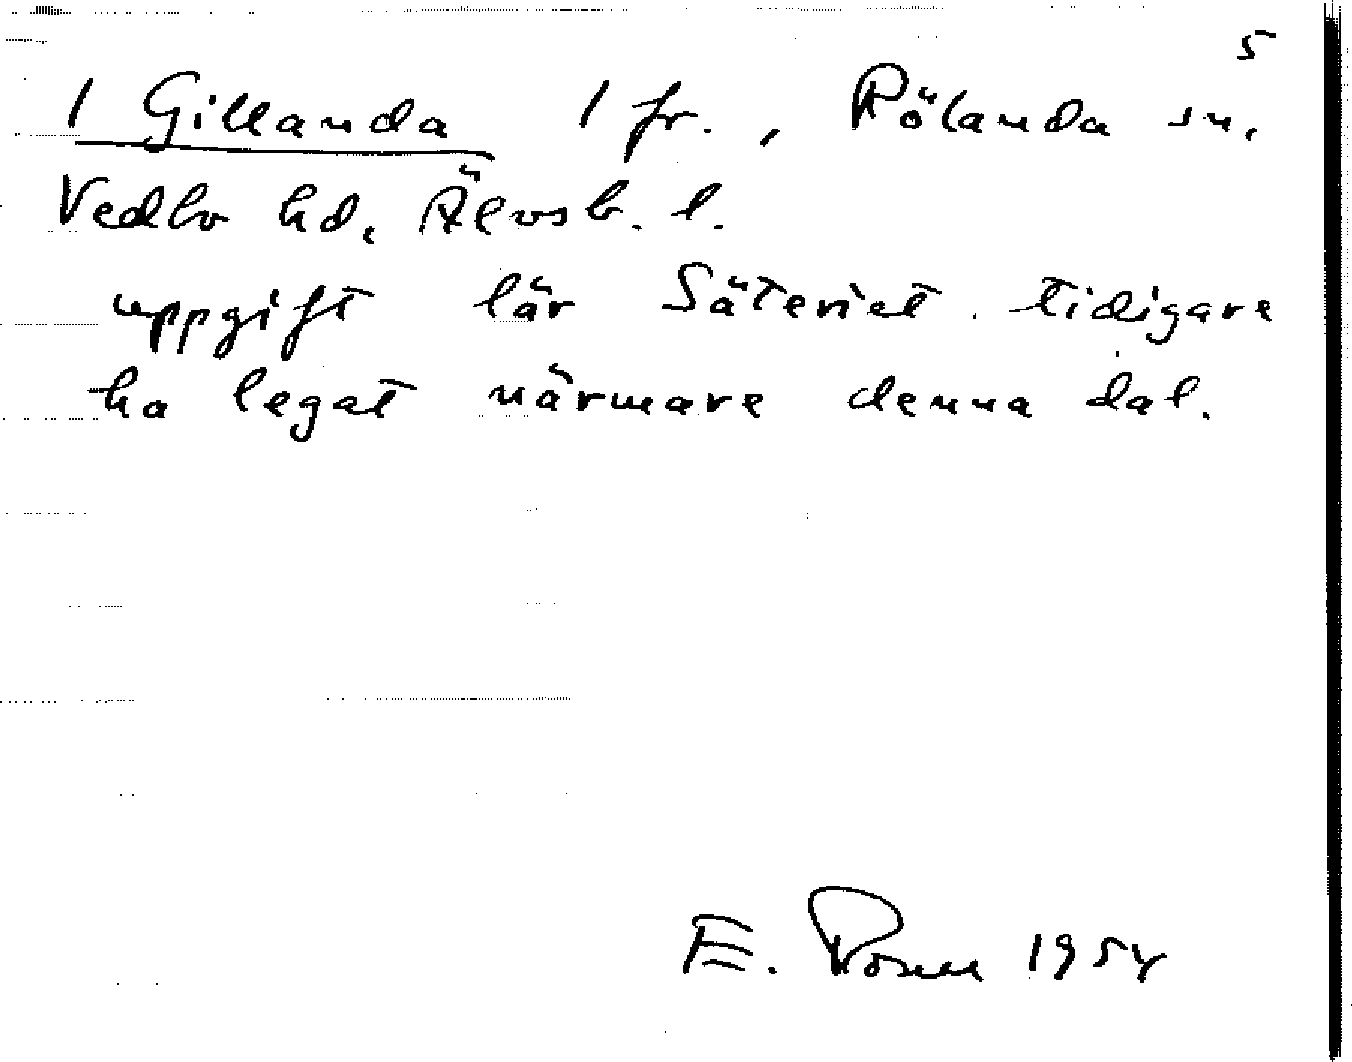 5
1 Gillanda 1 fr., Rölanda sn.
Vedbo hd. Älvsb. l.
uppgift lär Säteriet tidigare
ha legat närmare denna dal.
E. 1954